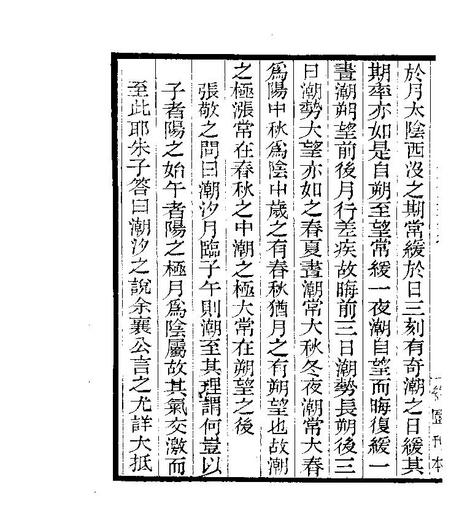 於月太陰西沒之期常緩於日三刻有奇潮之日緩其
期率亦如是自朔至望常緩一夜潮自望而晦復緩一
晝潮朔望前後月行差疾故晦前三日潮勢長朔後三
日潮勢大望亦如之春夏晝潮常大秋冬夜潮常大春
爲陽中秋爲陰中歲之有春秋猶月之有朔望也故潮
之極漲常在春秋之中潮之極大常在朔望之後
張敬之問曰潮汐月臨子午則潮至其理謂何豈以
子者陽之始午者陽之極月爲陰屬故其氣交激而
至此耶朱子答曰潮汐之說余襄公言之尤詳大抵
刊本